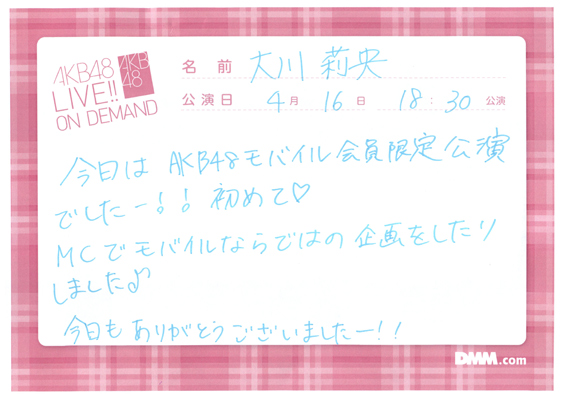 AKB48
LIVE!!
ON DEMAND
AKB
48
名前 大川莉央
公演日 4月 16日 18:30 公演
今日は AKB48モバイル会員限定公演
でしたー!! 初めて♡
MCでモバイルならではの企画をしたり
しました♪
今日もありがとうございましたー!!
DMM.com